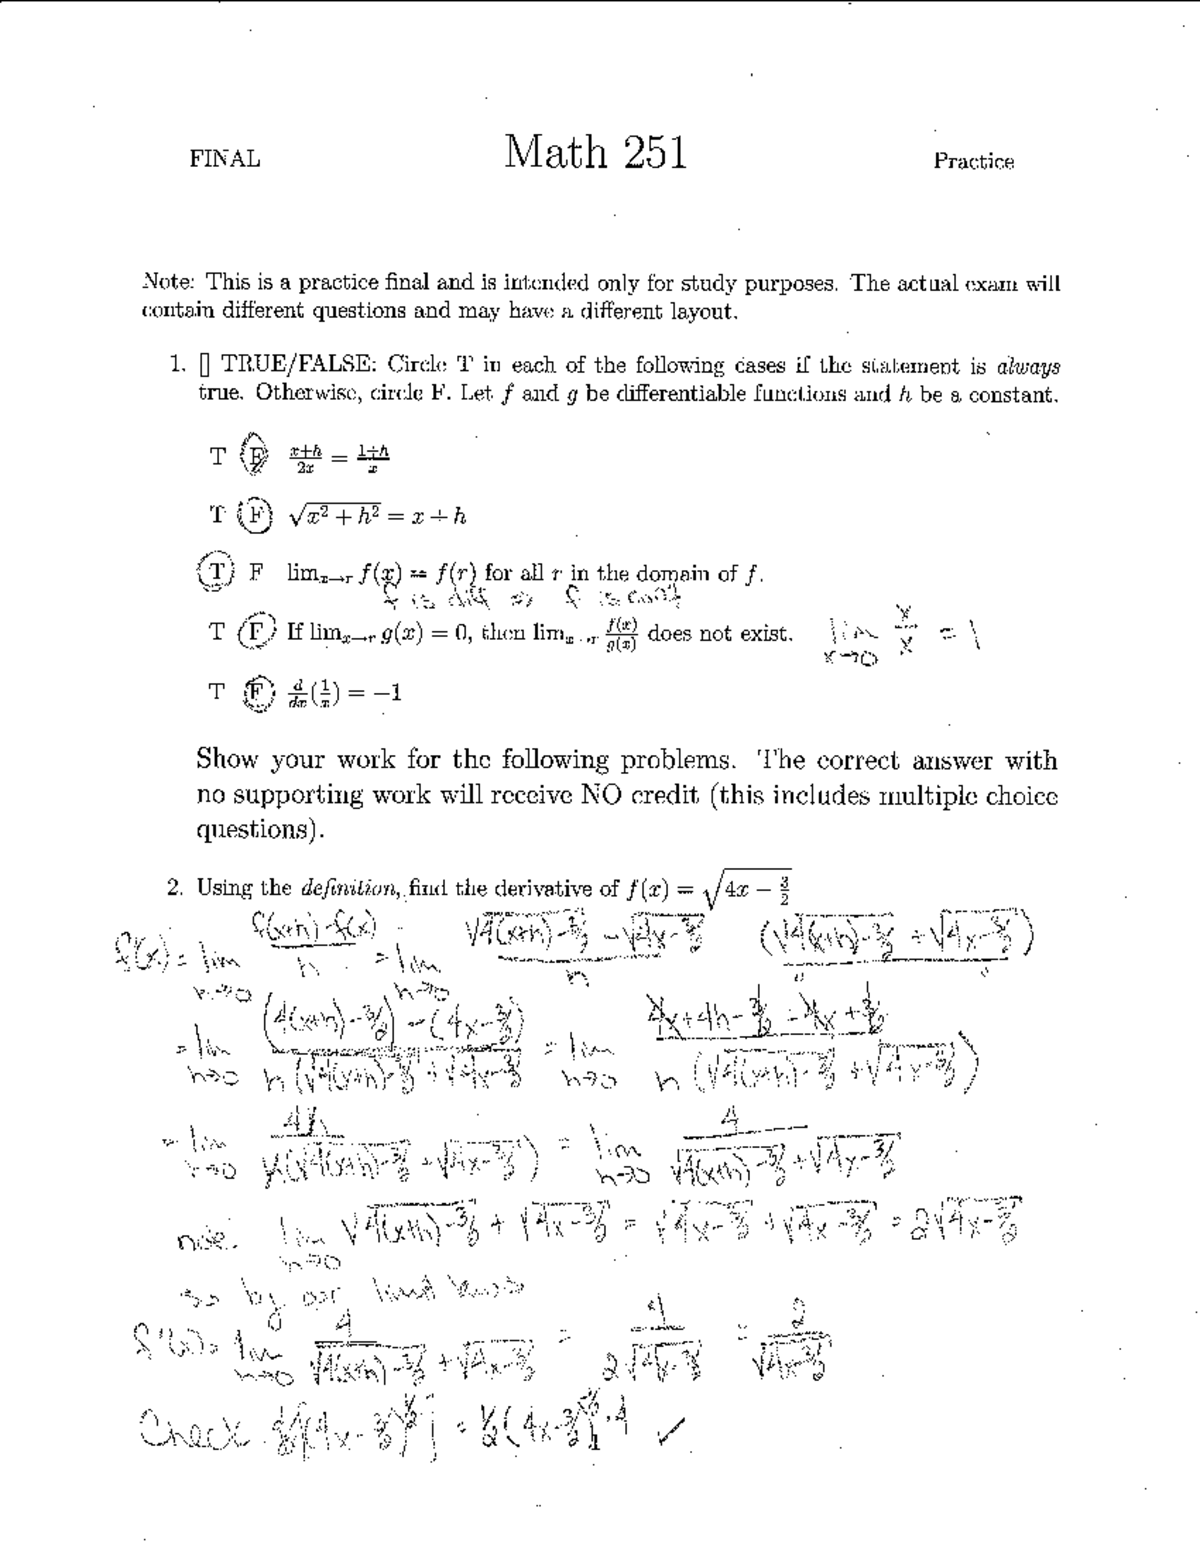 FINAL Math 251 Practice
Note: This is a practice final and is intended only for study purposes. The actual exam will
contain different questions and may have a different layout.
1. [] TRUE/FALSE: Circle T in each of the following cases if the statement is always
true. Otherwise, circle F. Let f and g be differentiable functions and h be a constant.
T F (x+h)/(2x) = (1+h)/x
T F √(x² + h²) = x + h
T F lim_{x→r} f(x) = f(r) for all r in the domain of f.
f is diff ⇒ f is cont
T F If lim_{x→r} g(x) = 0, then lim_{x→r} f(x)/g(x) does not exist. lim_{x→0} x/x = 1
T F d/dx(1/x) = −1
Show your work for the following problems. The correct answer with
no supporting work will receive NO credit (this includes multiple choice
questions).
2. Using the definition, find the derivative of f(x) = √(4x − 3/2)
f'(x) = lim_{h→0} (f(x+h)-f(x))/h = lim_{h→0} (√(4(x+h)-3/2) - √(4x-3/2))/h (√(4(x+h)-3/2) + √(4x-3/2))/" "
= lim_{h→0} ((4(x+h)-3/2) - (4x-3/2))/(h(√(4(x+h)-3/2) + √(4x-3/2))) = lim_{h→0} (4x+4h-3/2-4x+3/2)/(h(√(4(x+h)-3/2) + √(4x-3/2)))
= lim_{h→0} 4h/(h(√(4(x+h)-3/2) + √(4x-3/2))) = lim_{h→0} 4/(√(4(x+h)-3/2) + √(4x-3/2))
note: lim_{h→0} √(4(x+h)-3/2) + √(4x-3/2) = √(4x-3/2) + √(4x-3/2) = 2√(4x-3/2)
so by our limit laws
f'(x) = lim_{h→0} 4/(√(4(x+h)-3/2) + √(4x-3/2)) = 4/(2√(4x-3/2)) = 2/√(4x-3/2)
Check [(4x-3/2)^{1/2}] = 1/2(4x-3/2)^{-1/2}·4 ✓